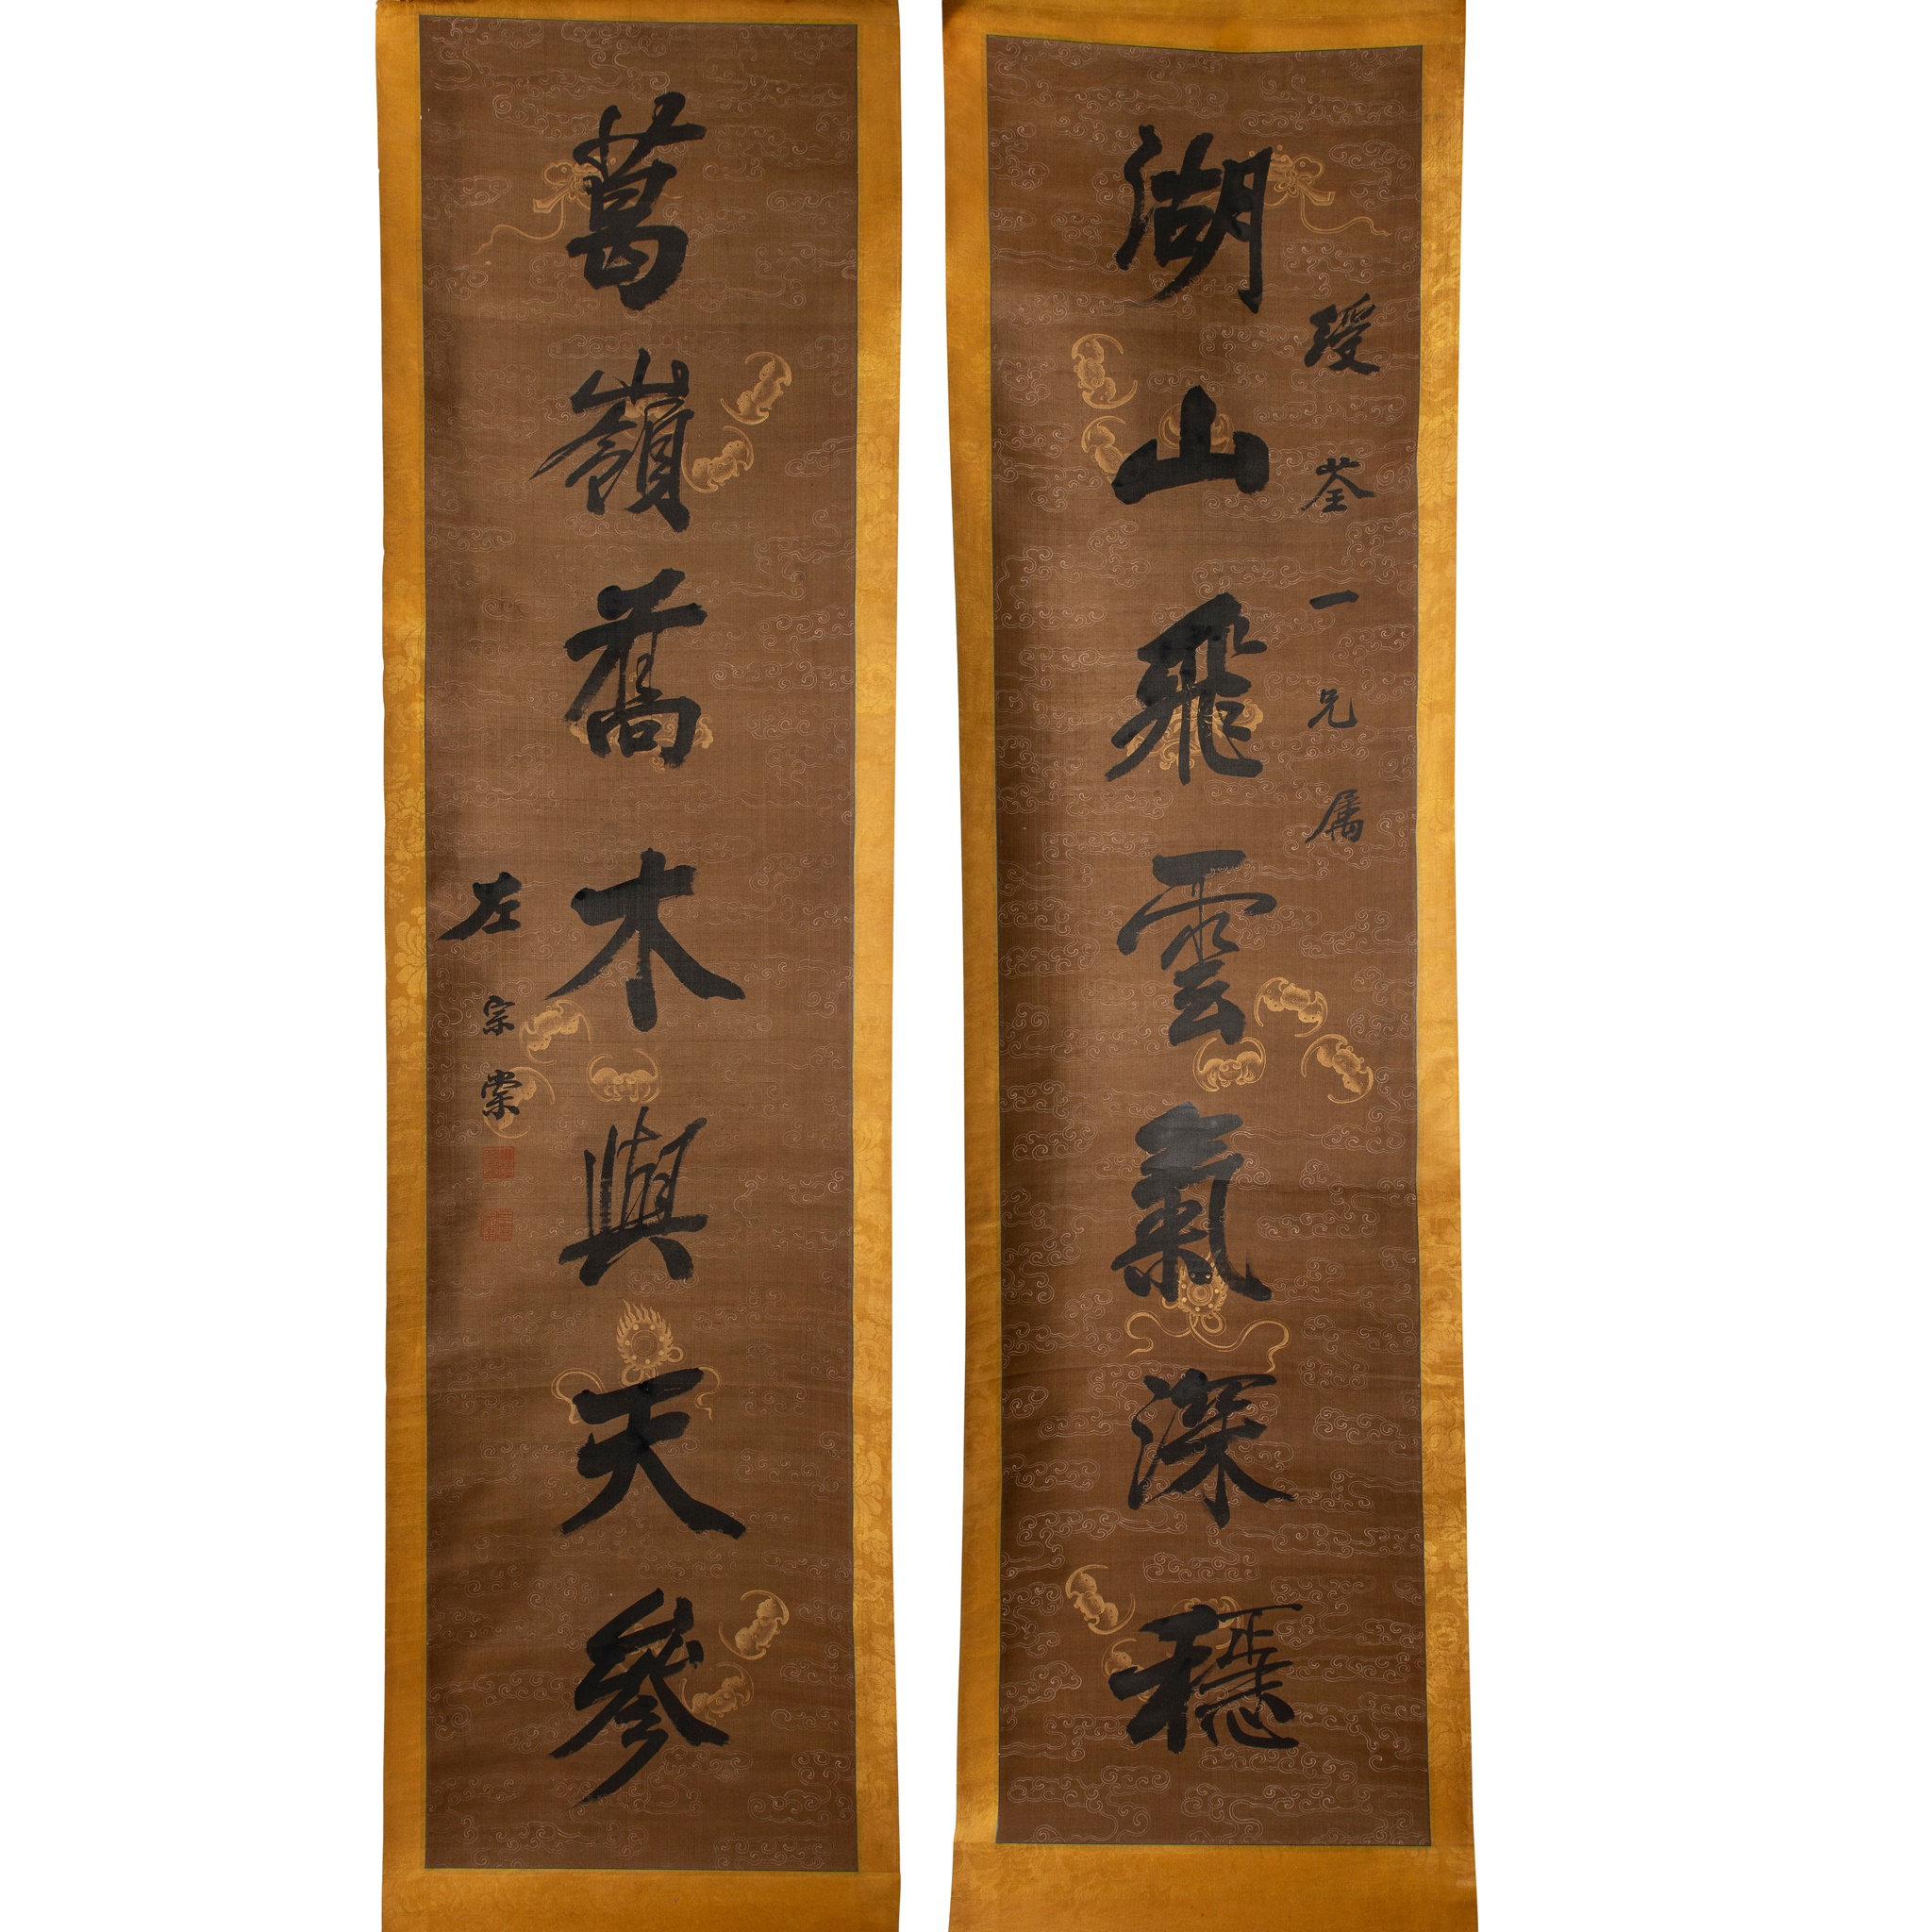 荃一兄属
湖山飛雲氣深穩
葛嶺喬木與天參
左宗棠